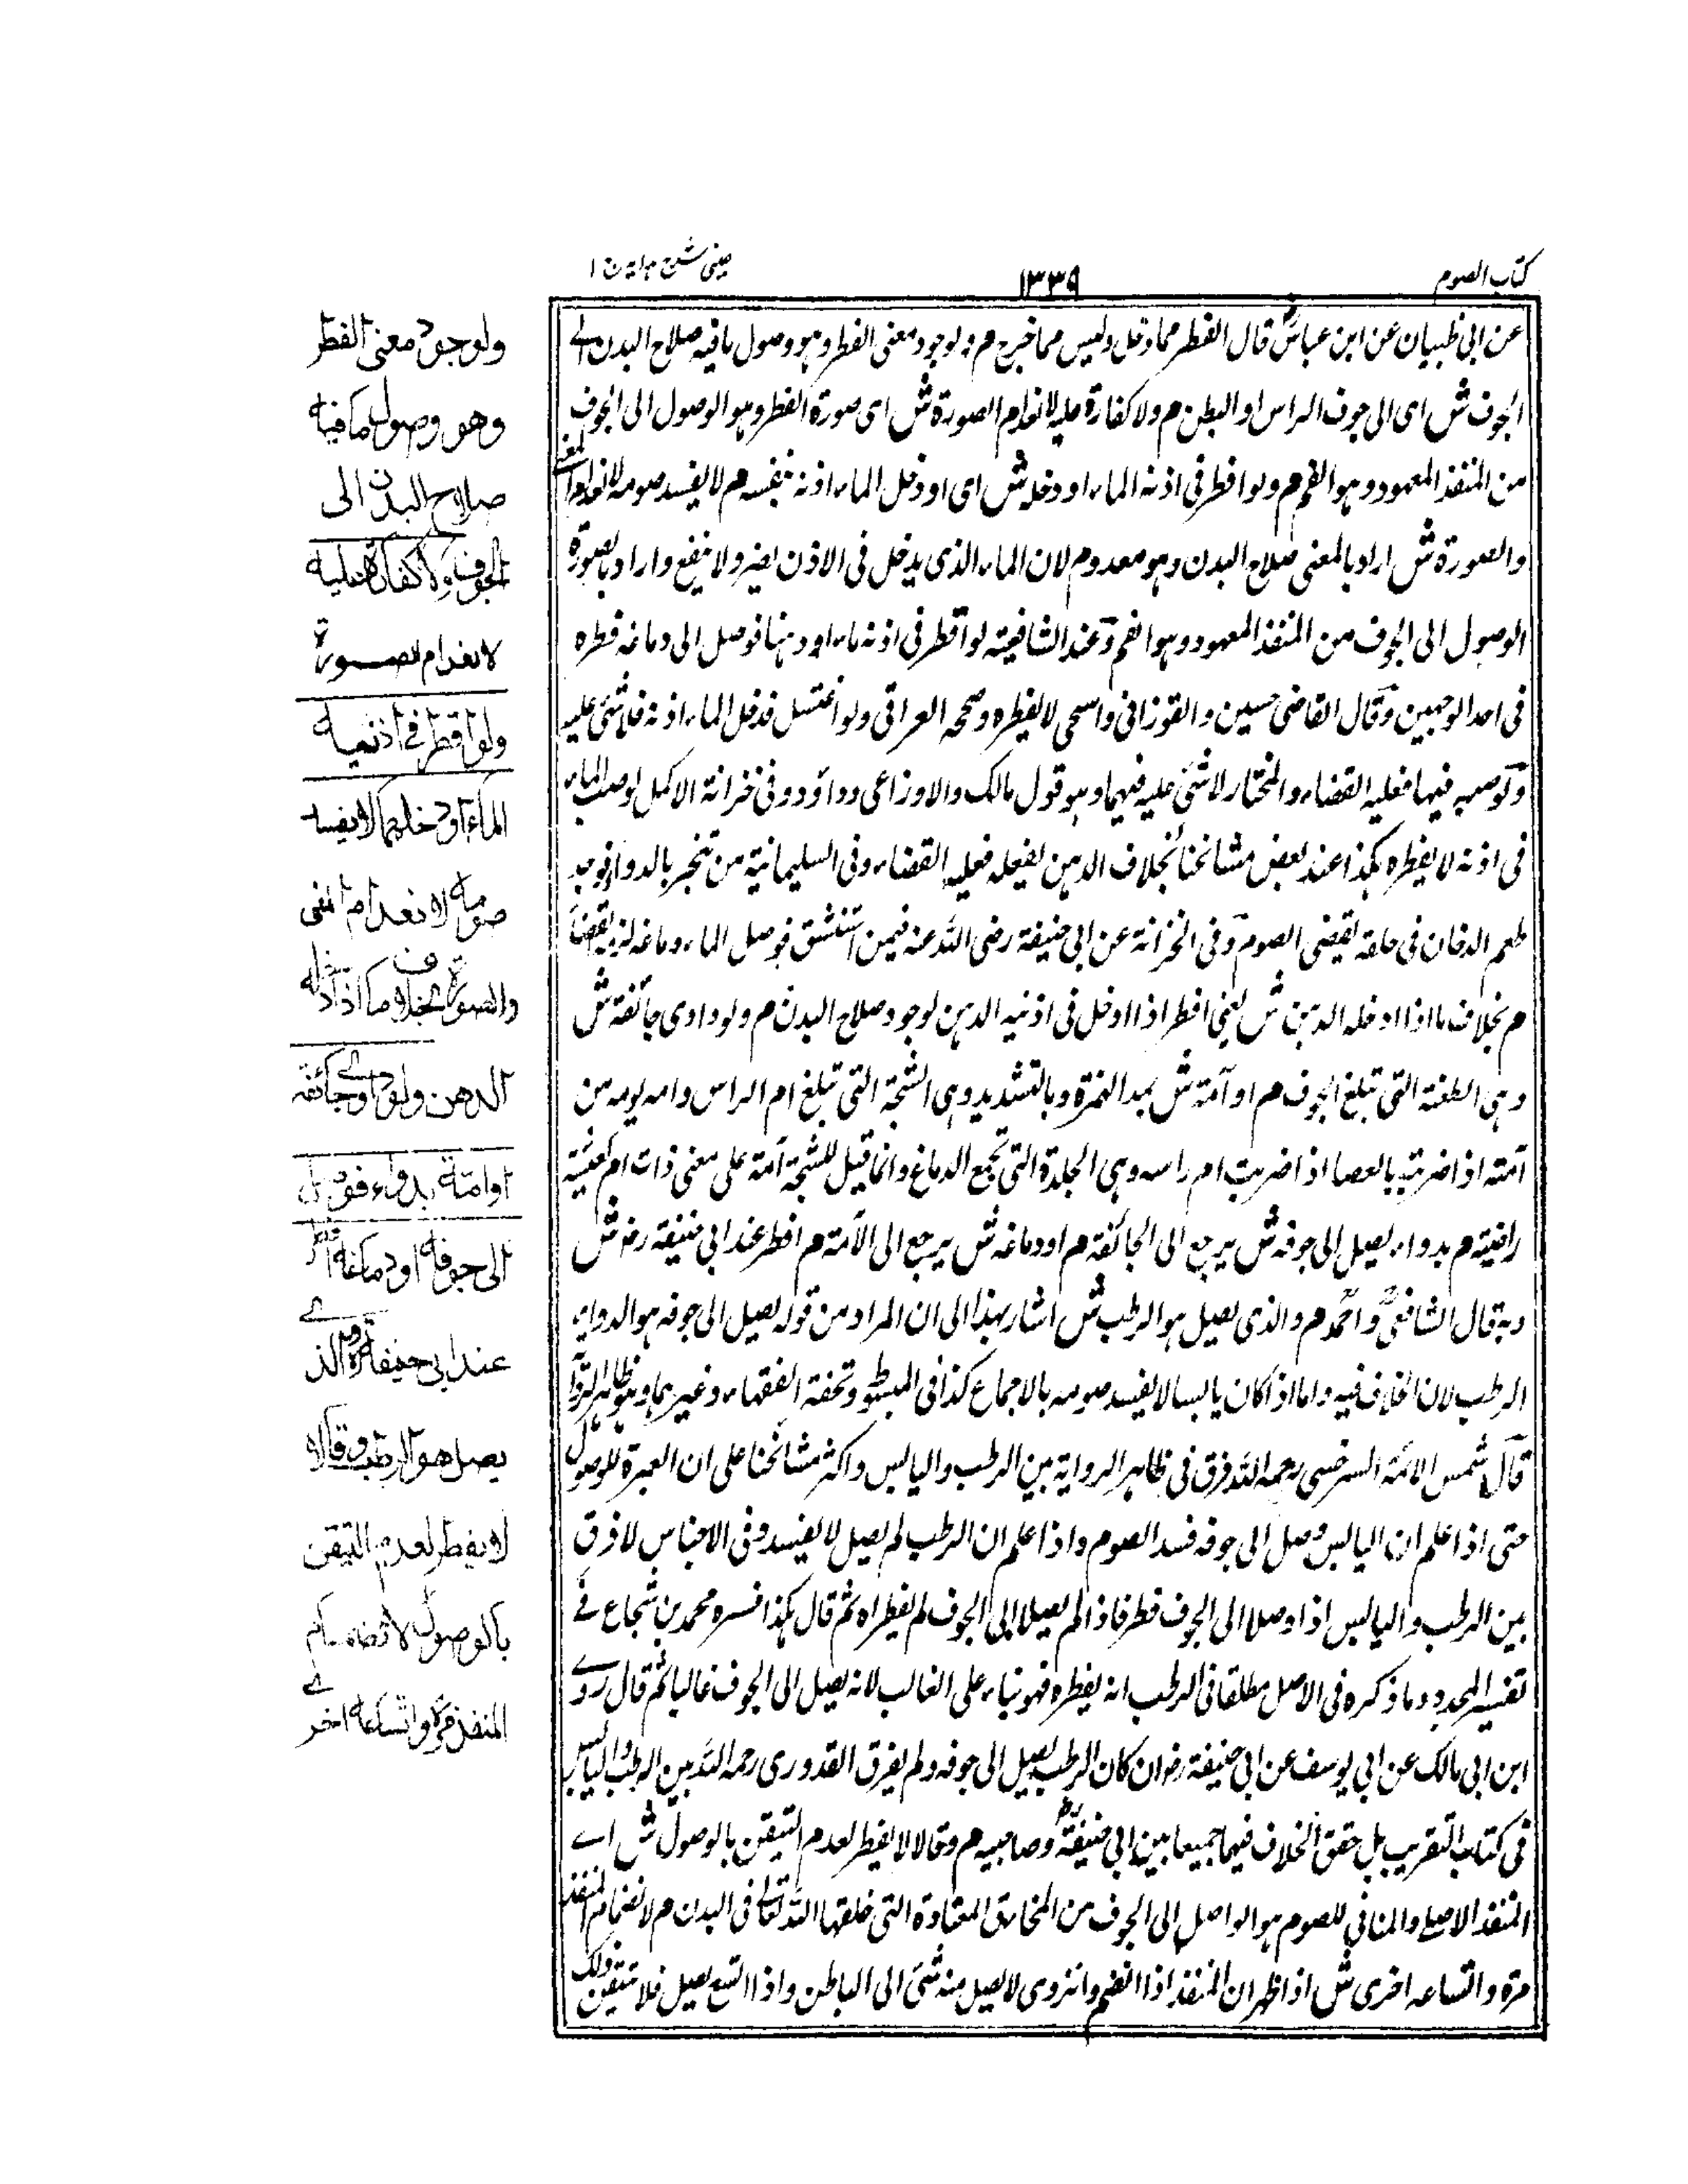 كتاب الصوم
١٣٣٩
عينى شرح هداية ج ١
عن ابى ظبيان عن ابن عباس قال الفطر مما دخل وليس مما خرج م ولوجود معنى الفطر وهو وصول ما فيه صلاح البدن الے
الجوف ش اى الى جوف الراس او البطن م ولا كفارة عليه لانعدام الصورة ش اى صورة الفطر وهو الوصول الى الجوف
من المنفذ المعهود وهو الفم م ولو اقطر فى اذنه الماء او دخله ش اى او دخل الماء اذنه بنفسه م لا يفسد صومه لانعدام المعنے
والصورة ش اراد بالمعنى صلاح البدن وهو معدوم لان الماء الذى يدخل فى الاذن يضر ولا ينفع واراد بالصورة
الوصول الى الجوف من المنفذ المعهود وهو الفم وعند الشافعية لو اقطر فى اذنه ماء او دهنا فوصل الى دماغه فطره
فى احد الوجهين وقال القاضى حسين و الفوزانى واسحى لا يفطره وصححه العراقى ولو اغتسل فدخل الماء اذنه فلا شئ عليه
ولو صبه فيها فعليه القضاء والمختار لا شئ عليه فيهما وهو قول مالك والاوزاعى وداؤد وفى خزانة الاكمل لو صب الماء
فى اذنه لا يفطره هكذا عند بعض مشائخنا بخلاف الدهن يفعله فعليه القضاء وفى السليمانية من تبخر بالدواء فوجد
طعم الدخان فى حلقه يقضى الصوم وفى الخزانة عن ابى حنيفة رضى الله عنه فيمن استنشق فوصل الماء دماغه لزمه القضاء
م بخلاف ما اذا ادخله الدهن ش يعنى افطر اذا ادخل فى اذنيه الدهن لوجود صلاح البدن م ولو داوى جائفة ش
وهى الطعنة التى تبلغ الجوف م او آمة ش بمد الهمزة وبالتشديد وهى الشجة التى تبلغ ام الراس وامه يومه من
آمته اذا ضربته بالعصا اذا ضربت ام راسه وهى الجلدة التى تجمع الدماغ وانما قيل للشجة آمة على معنى ذات ام كعيشة
راضية م بدواء يصل الى جوفه ش يرجع الى الجائفة م او دماغه ش يرجع الى الآمة م افطر عند ابى حنيفة رض ش
وبه قال الشافعى و احمد م والذى يصل هو الرطب ش اشار بهذا الى ان المراد من قوله يصل الى جوفه هو الدواء
الرطب لان الخلاف فيه واما اذا كان يابسا لا يفسد صومه بالاجماع كذا فى المبسوط وتحفة الفقهاء وغيرهما وهو ظاهر الرواية
قال شمس الائمة السرخسى رحمه الله فرق فى ظاهر الرواية بين الرطب واليابس واكثر مشائخنا على ان العبرة للوصول
حتى اذا علم ان اليابس وصل الى جوفه فسد الصوم واذا علم ان الرطب لم يصل لا يفسد وفى الاجناس لا فرق
بين الرطب و اليابس اذا وصلا الى الجوف فطر فاذا لم يصلا الى الجوف لم يفطراه ثم قال هكذا فسره محمد بن شجاع فے
تفسير المجرد وما ذكره فى الاصل مطلقا فى الرطب انه يفطره فهو بناء على الغالب لانه يصل الى الجوف غالبا ثم قال روے
ابن ابى مالك عن ابى يوسف عن ابى حنيفة رض ان كان الرطب يصل الى جوفه ولم يفرق القدورى رحمه الله بين الرطب واليابس
فى كتاب التقريب بل حقق الخلاف فيهما جميعا بين ابى حنيفة وصاحبيه م وقالا لا يفطر لعدم التيقن بالوصول ش اے
المنفذ الاصلے والمنافى للصوم هو الواصل الى الجوف من المخارق المعتادة التى خلقها الله تعالى فى البدن م لانضمام المنفذ
مرة واتساعه اخرى ش اذ اظهر ان المنفذ اذا انضم وانزوى لا يصل منه شئ الى الباطن واذا اتسع يصل فلا يتيقن ذلك
ولوجود معنى الفطر
وهو وصول ما فيه
صلاح البدن الى
الجوف ولا كفارة عليه
لانعدام الصورة
ولو اقطر فے اذنيه
الماء او دخلهما لا يفسد
صومه لانعدام المعنى
والصورة بخلاف ما اذا ادخله
الدهن ولو داوے جائفة
او آمة بدواء فوصل
الى جوفه او دماغه افطر
عند ابى حنيفة رح والذے
يصل هو الرطب وقالا
لا يفطر لعدم التيقن
بالوصول لانضمام
المنفذ مرة واتساعه اخرے